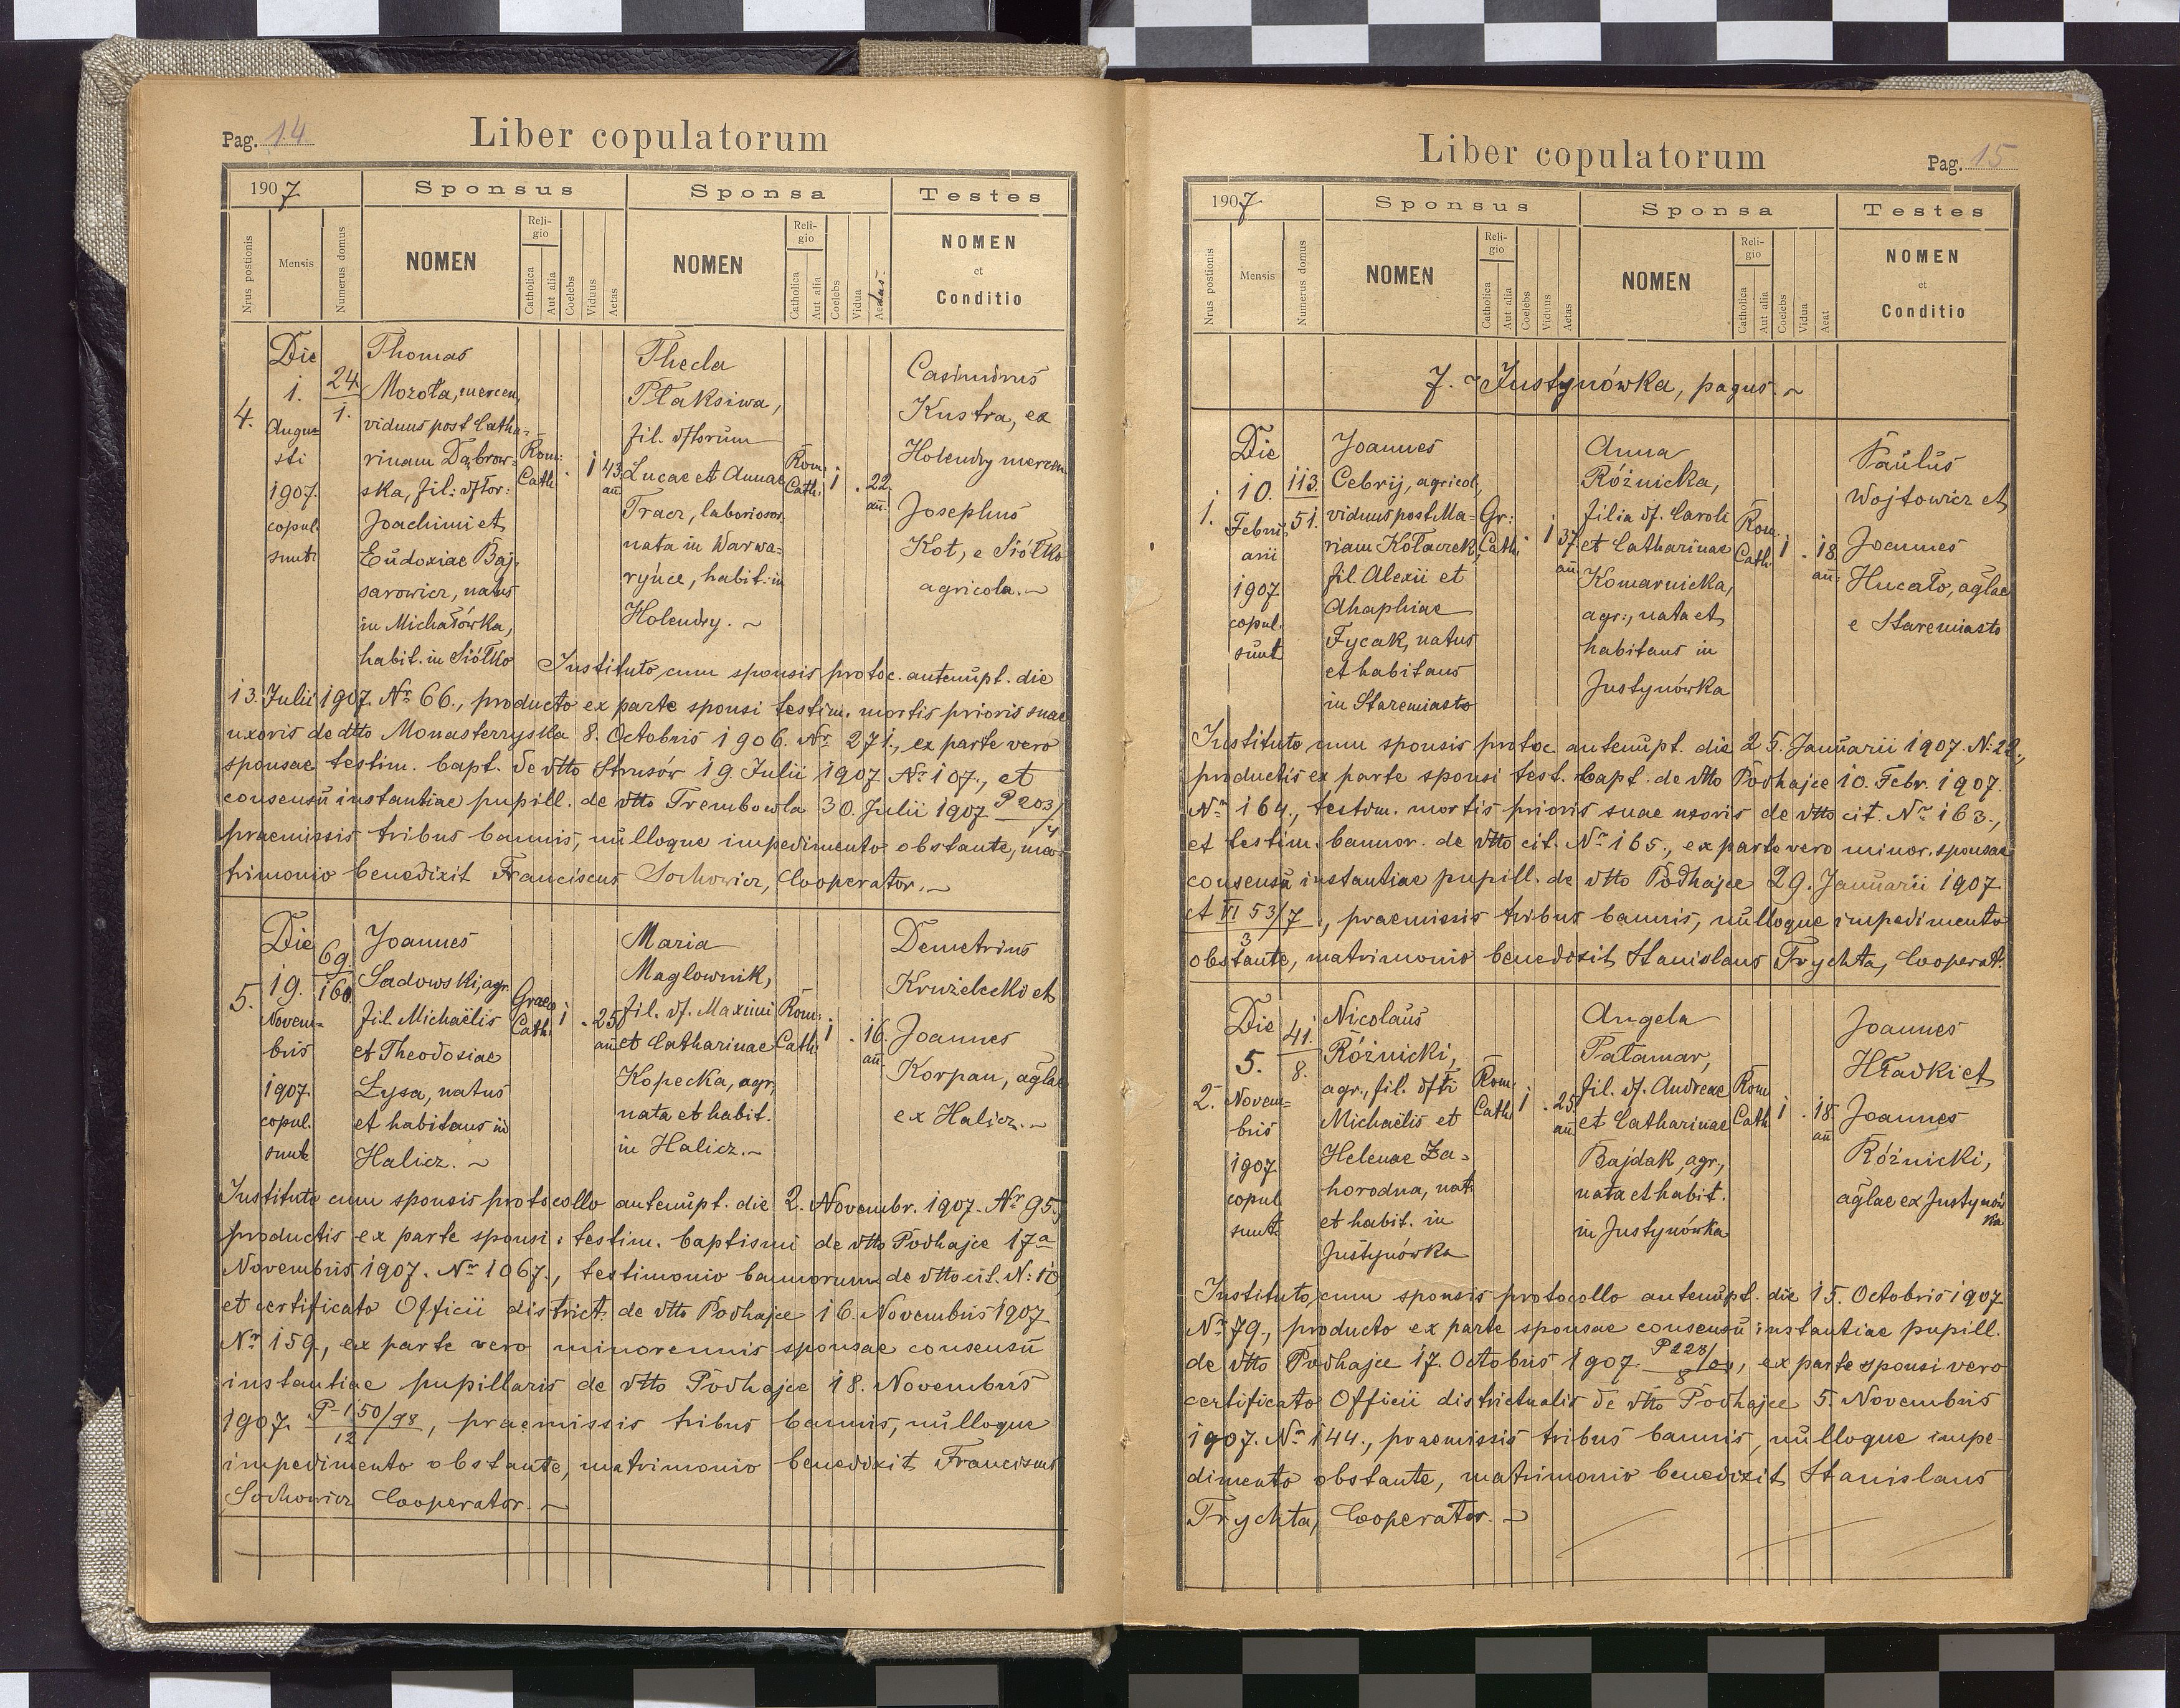 Pag. 14
Liber copulatorum
1907
Sponsus
Sponsa
Testes
Nrus postionis
Mensis
Numerus domus
NOMEN
Reli-
gio
Catholica
Aut alia
Coelebs
Viduus
Aetas
NOMEN
Reli-
gio
Catholica
Aut alia
Coelebs
Vidua
Aetas
NOMEN
et
Conditio
4.
Die
1.
Augu=
sti
1907.
copul.
sunt
24.
1.
Thomas
Mozoła, mercen.,
viduus post Catha=
rinam Dąbrow=
ska, fil: dftor:
Joachimi et
Eudoxiae Baj=
sarowicz, natus
in Michałówka,
habit. in Siółko
Rom:
Cath.
1
43.
añ.
Thecla
Płaksiwa,
fil. dftorum
Lucae et Annae
Tracz, laborioсor.
nata in Warwa=
ryńce, habit. in
Holendry. ~
Rom.
Cath.
1
. 22.
añ.
Casimirus
Kustra, ex
Holendry mercen.
Josephus
Kot, e Siółko
agricola. ~
Instituto cum sponsis protoc. antenupt. die
13. Julii 1907. Nr. 66., producto ex parte sponsi testim. mortis prioris suae
uxoris de dtto Monasterzyska 8. Octobris 1906. Nr. 271., ex parte vero
sponsae testim. bapt. de dtto Strusów 19. Julii 1907 Nr. 107., et
consensu instantiae pupill. de dtto Trembowla 30. Julii 1907 P 203/
4
praemissis tribus bannis, nulloque impedimento obstante, ma=
trimonio benedixit Franciscus Sochowicz, Cooperator. ~
5.
Die
19.
Novem=
bris
1907
copul.
sunt
69.
160
Joannes
Sadowski, agr.
fil. Michaëlis
et Theodosiae
Łysa, natus
et habitans in
Halicz. ~
Graec.
Cath.
1
. 25
añ
Maria
Maglownik,
fil. df. Maximi
et Catharinae
Kopecka, agr.,
nata et habit.
in Halicz. ~
Rom:
Cath.
1
. 16.
añ.
Demetrius
Krużelecki et
Joannes
Korpan, aglae
ex Halicz. ~
Instituto cum sponsis protocollo antenupt. die 2. Novembr. 1907. Nr 95.,
productis ex parte sponsi: testim. baptismi de dtto Podhajce 17a
Novembris 1907. Nr. 1067., testimonio bannorum de dtto cit. N: 10
et certificato Officii district. de dtto Podhajce 16. Novembris 1907
Nr. 159., ex parte vero minorennis sponsae consensu
instantiae pupillaris de dtto Podhajce 18. Novembris
1907. P 150/98, praemissis tribus bannis, nulloque
12
impedimento obstante, matrimonio benedixit Franciscus
Sochowicz Cooperator. ~
Liber copulatorum
Pag. 15
1907
Sponsus
Sponsa
Testes
Nrus postionis
Mensis
Numerus domus
NOMEN
Reli-
gio
Catholica
Aut alia
Coelebs
Viduus
Aetas
NOMEN
Reli-
gio
Catholica
Aut alia
Coelebs
Vidua
Aeat
NOMEN
et
Conditio
7. ~ Justynówka, pagus. ~
1.
Die
10.
Febru=
arii
1907
copul.
sunt
113.
51.
Joannes
Cebrij, agricol.,
viduus post Ma=
riam Kołaczek,
fil. Alexii et
Ahaphiae
Fycak, natus
et habitans
in Staremiasto
Gr:
Cath.
1
37
añ.
Anna
Różnicka,
filia df. Caroli
et Catharinae
Komarnicka,
agr., nata et
habitans in
Justynówka
Rom.
Cath.
1
. 18.
añ.
Paulus
Wojtowicz et
Joannes
Hucało, aglae
e Staremiasto
Instituto cum sponsis protoc. antenupt. die 25. Januarii 1907. N: 22.,
productis ex parte sponsi test. bapt. de dtto Podhajce 10. Febr. 1907.
Nr. 164., testim. mortis prioris suae uxoris de dtto cit. Nr. 163.,
et testim. bannor. de dtto cit. Nr. 165., ex parte vero minor. sponsae
consensu instantiae pupill. de dtto Podhajce 29. Januarii 1907
A VI 53/7., praemissis tribus bannis, nulloque impedimento
3
obstante, matrimonio benedixit Stanislaus Trychta, Cooperat.
2.
Die
5.
Novem=
bris
1907
copul
sunt.
41.
8.
Nicolaus
Różnicki,
agr., fil. dfti
Michaëlis et
Helenae Za=
horodna, nat.
et habit. in
Justynówka
Rom.
Cath.
1
. 25.
añ.
Angela
Patamar,
fil. df. Andreae
et Catharinae
Bajdak, agr.,
nata et habit.
in Justynówka
Rom
Cath
1
. 18.
añ
Joannes
Hładki et
Joannes
Różnicki,
aglae ex Justynów
ka
Instituto cum sponsis protocollo antenupt. die 15. Octobris 1907
Nr. 79., producto ex parte sponsae consensu instantiae pupill.
de dtto Podhajce 17. Octobris 1907. P 228/04, ex parte sponsi vero
8
certificato Officii districtualis de dtto Podhajce 5. Novembris
1907. Nr. 144., praemissis tribus bannis, nulloque impe-
dimento obstante, matrimonio benedixit Stanislaus
Trychta, Cooperator. ~